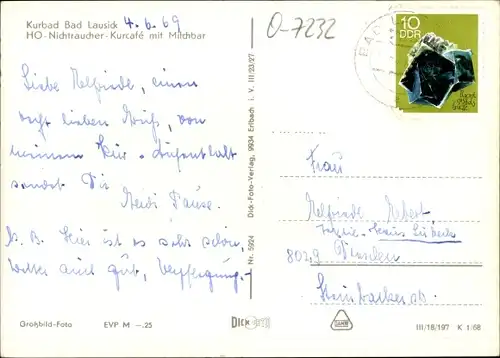 Kurbad Bad Lausick 4.6.69
HO-Nichtraucher-Kurcafé mit Milchbar
O-7232
10
DDR
BAD
Liebe Elfriede, einen
recht lieben Gruß, von
meinem Kur-Aufenthalt
sendet Dir
Heidi
N.B. Hier ist es sehr schön,
Wetter auch gut, Verpflegung.-
Dick-Foto-Verlag, 9934 Erlbach i. V. III/23/27
Nr. 5924
Frau
Elfriede
Haus
8029 Dresden
Steinbacher
Großbild-Foto EVP M -.25
DICK
III/18/197 K 1/68